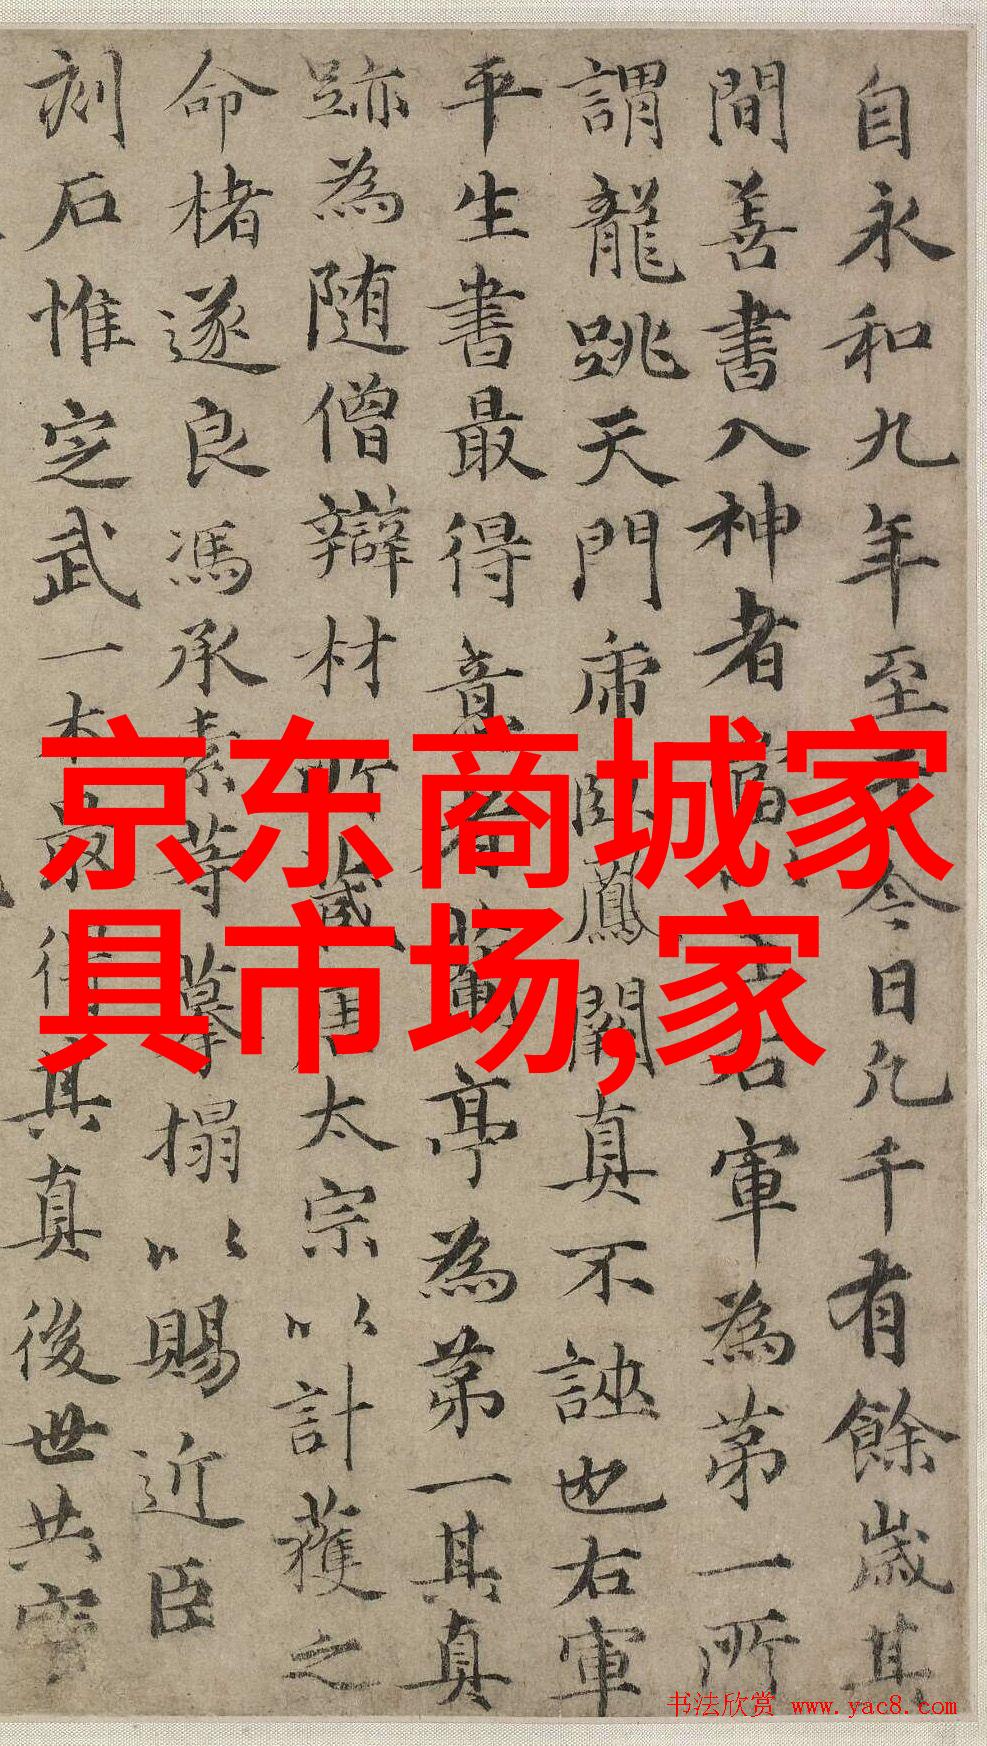 自永和九年至于今日凡千有餘歲其
間善書入神者當以王右軍為第一所
謂龍跳天門虎臥鳳閣真不誣也右軍
平生書最得意者蘭亭為第一其真
跡為随僧辯材所藏唐太宗以計獲之
命楮遂良馮承素等摹搨以賜近臣
刻石惟定武一本最得其真後世共寶
京东商城家
具市场,家
书法欣赏 www.yac8.com